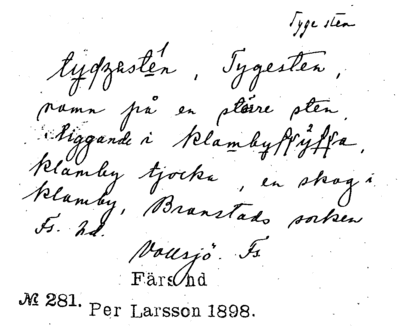 Tyge sten
tydzastén, Tygesten,
namn på en större sten,
liggande i klamby
klamby tjocka, en skog i
klamby, Branstads socken
Fs. hd.
Vollsjö. Fs
Färs hd
№ 281. Per Larsson 1898.